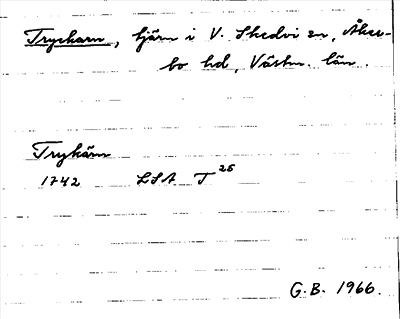 Tryckarn, tjärn i V. Skedvi sn, Åker-
bo hd, Västm. län.
Trykärn
1742 LSA T 25
G.B. 1966.